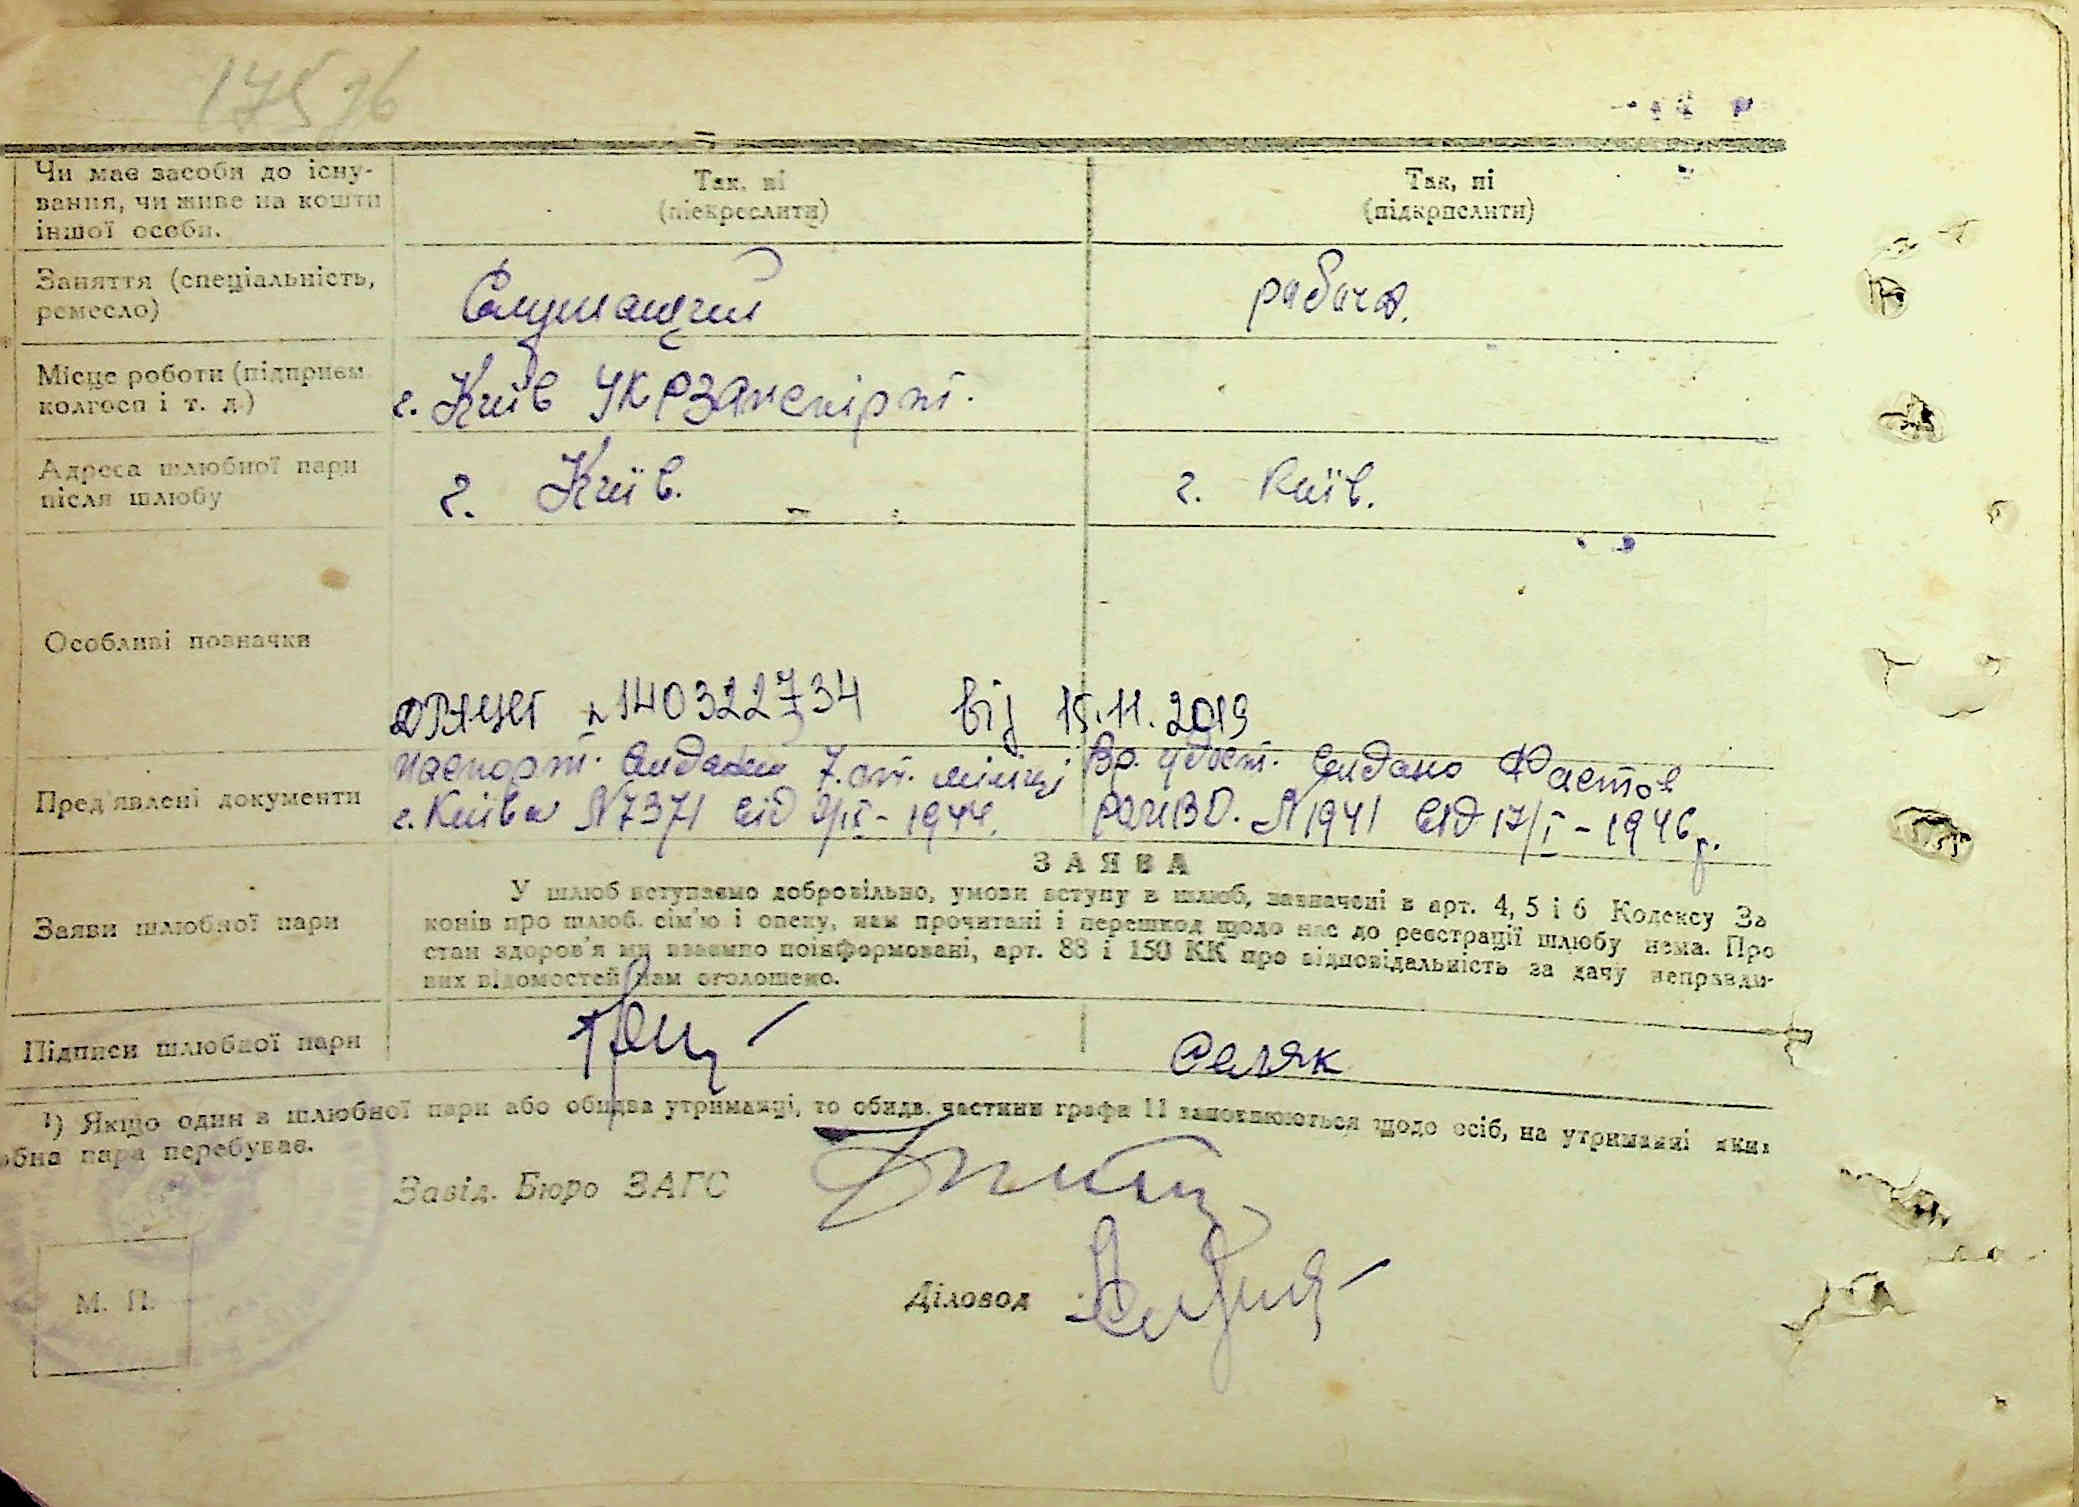 175 зб
Чи має засоби до існу-
вання, чи живе на кошти
іншої особи.
Так, ні
(підкреслити)
Так, ні
(підкреслити)
Заняття (спеціальність,
ремесло)
Служащий
рабоча.
Місце роботи (підприєм
колгосп і т. д.)
г. Київ
Адреса шлюбної пари
після шлюбу
г. Київ.
г. Київ.
Особливі позначки
ДРАЦСГ № 140322734 від 15.11.2019
Пред'явлені документи
паспорт. виданий 7. от. міліції
г. Київа N 7371 від 1944.
Вр. удост. видано Фастов
N 1941 від 17/I – 1946 р.
ЗАЯВА
Заяви шлюбної пари
У шлюб вступаємо добровільно, умови вступу в шлюб, зазначені в арт. 4, 5 і 6 Кодексу За
конів про шлюб. сім'ю і опеку, нам прочитані і перешкод щодо нас до реєстрації шлюбу нема. Про
стан здоров'я ми взаємно поінформовані, арт. 88 і 150 КК про відповідальність за дачу неправди-
вих відомостей нам оголошено.
Підписи шлюбної пари
Селяк
¹) Якщо один в шлюбної пари або обидва утриманці, то обидв. частини графи 11 заповнюються щодо осіб, на утриманні яких
обна пара перебуває.
Завід. Бюро ЗАГС
Діловод
М. П.